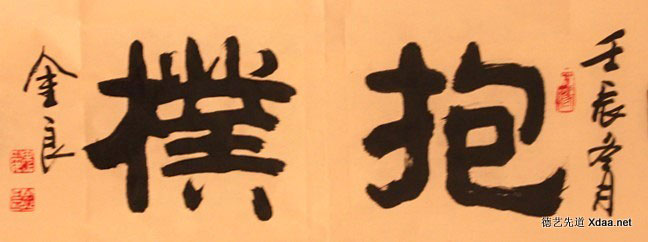 壬辰冬月
抱樸
金良
德艺先道 Xdaa.net